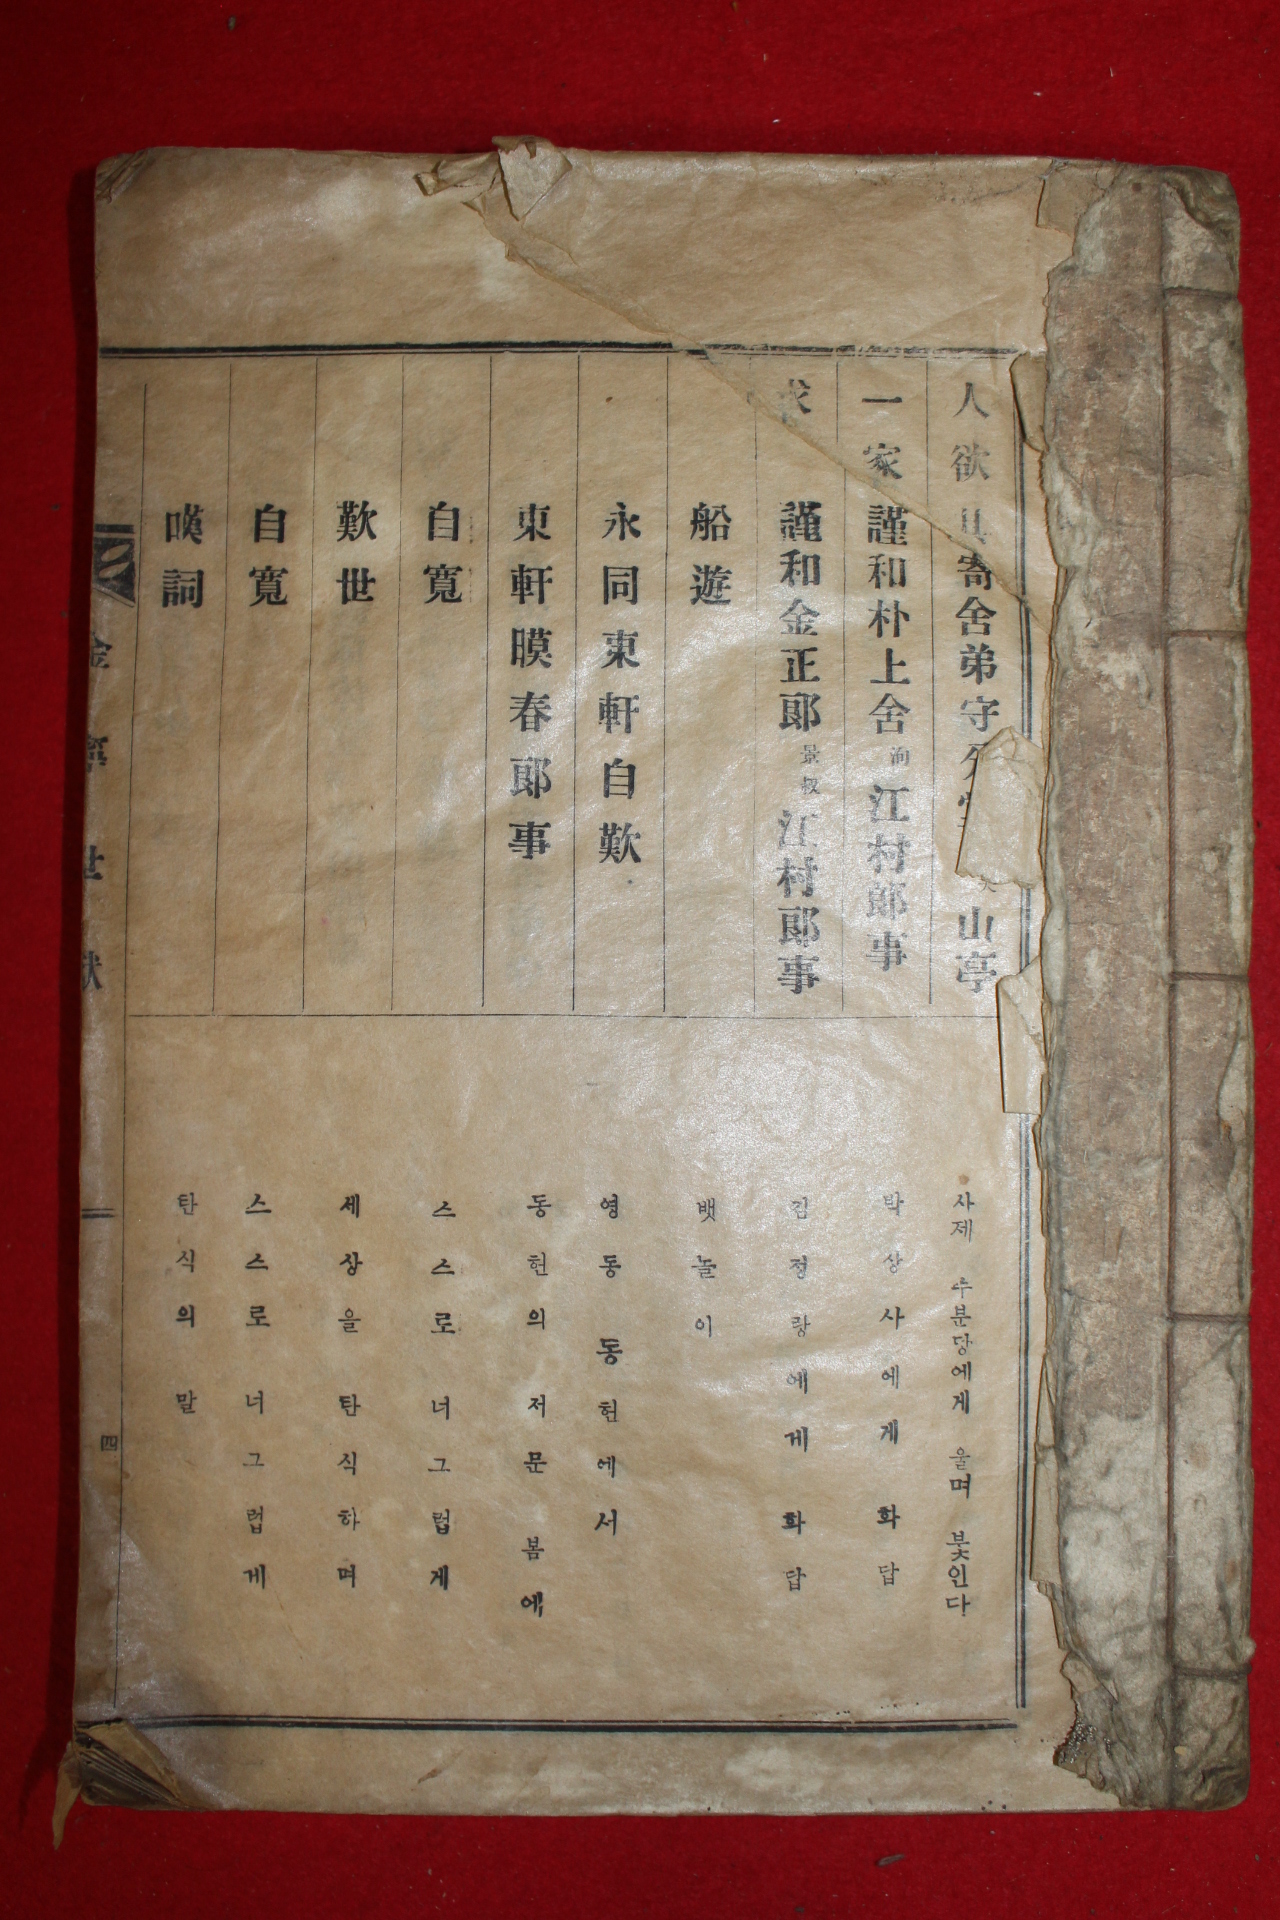 寄舍弟守 山亭
謹和朴上舍 泂 江村郎事
謹和金正郞 景叔 江村郞事
船遊
永同東軒自歎
東軒暯春郞事
自寬
歎世
自寬
嘆詞
人欲
一家
求
사제 수분당에게 울며 붗인다
박상사에게 화답
김정랑에게 화답
뱃놀이
영동 동헌에서
동헌의 저문 봄에
스스로 너그럽게
세상을 탄식하며
스스로 너그럽게
탄식의 말
金寧世獻
四